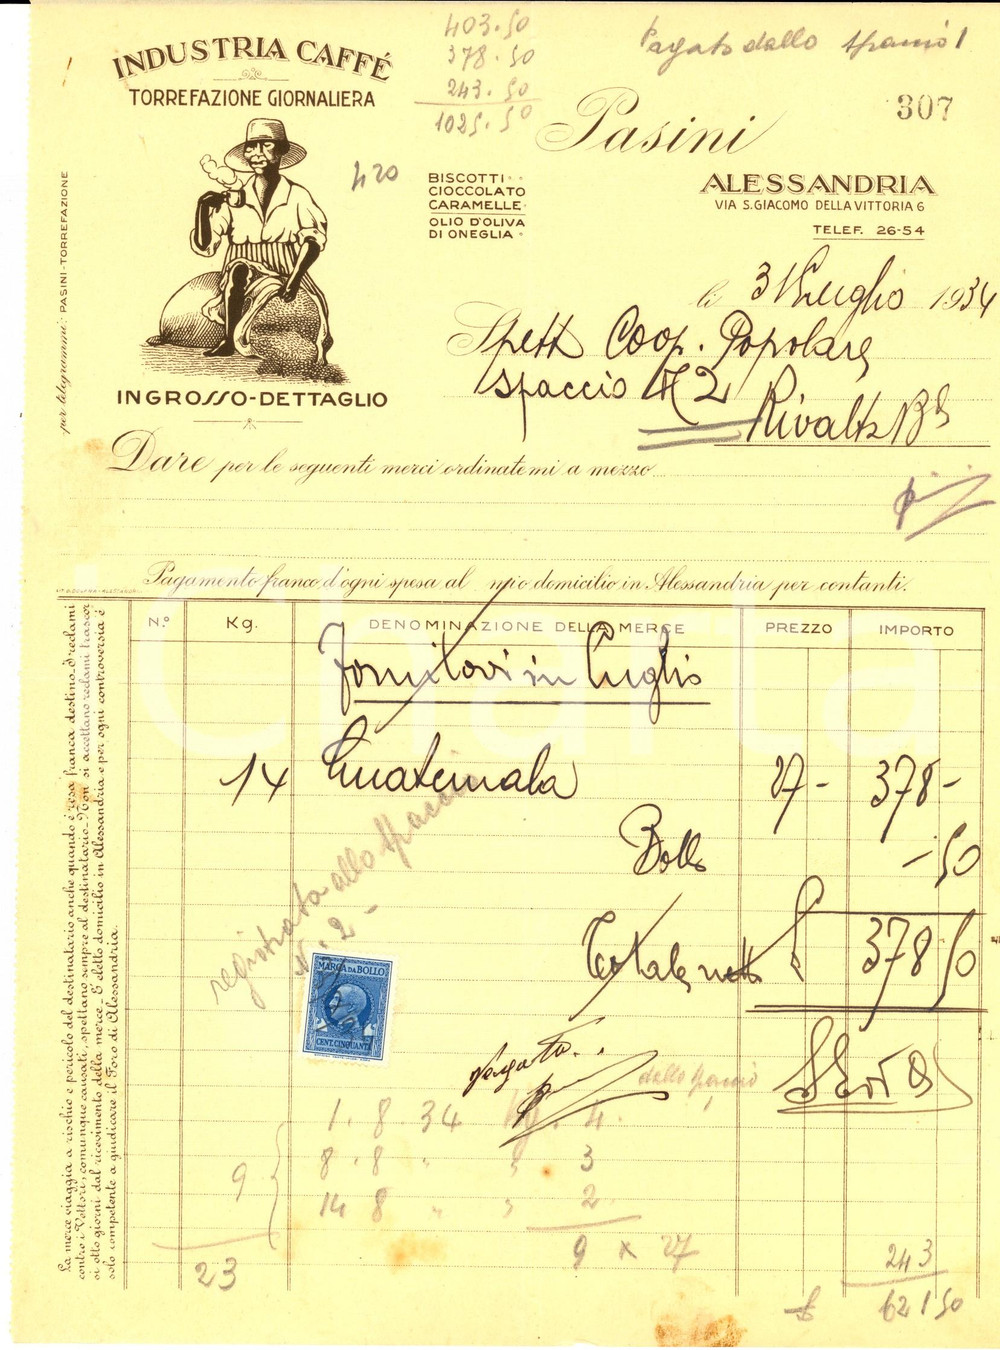 403.50
378.50
243.50
1025.50
Pagato dallo
INDUSTRIA CAFFÉ
TORREFAZIONE GIORNALIERA
307
Pasini
420
BISCOTTI
CIOCCOLATO
CARAMELLE
OLIO D'OLIVA
DI ONEGLIA
ALESSANDRIA
VIA S. GIACOMO DELLA VITTORIA 6
TELEF. 26-54
per telegrammi: PASINI-TORREFAZIONE
li 31 Luglio 1934
Spett Coop. Popolare
Spaccio N 2
Rivalta Bda
INGROSSO-DETTAGLIO
Dare per le seguenti merci ordinatemi a mezzo
Pagamento franco d'ogni spesa al mio domicilio in Alessandria per contanti.
N.º Kg. DENOMINAZIONE DELLA MERCE PREZZO IMPORTO
Fornitovi in Luglio
14 Guatemala 27- 378-
Bollo -50
Totale netto £ 378 50
registrata allo spaccio
N. 2-
MARCA DA BOLLO
CENT. CINQUANTA
Pagata..
dallo
1.8.34 Kg. 4.
8.8 " " 3
14 8 " " 2
9
9 x 27 243
23
£ 621 50
La merce viaggia a rischio e pericolo del destinatario anche quando è resa franca destino. I reclami
contro i Vettori, comunque causati, spettano sempre al destinatario. Non si accettano reclami trascor
si otto giorni dal ricevimento della merce. E' eletto domicilio in Alessandria e per ogni controversia è
solo competente a giudicare il Foro di Alessandria.